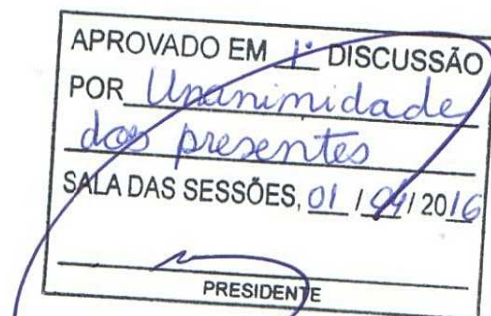 APROVADO EM 1ª DISCUSSÃO
POR Unanimidade
dos presentes
SALA DAS SESSÕES, 01 / 04 / 2016
PRESIDENTE